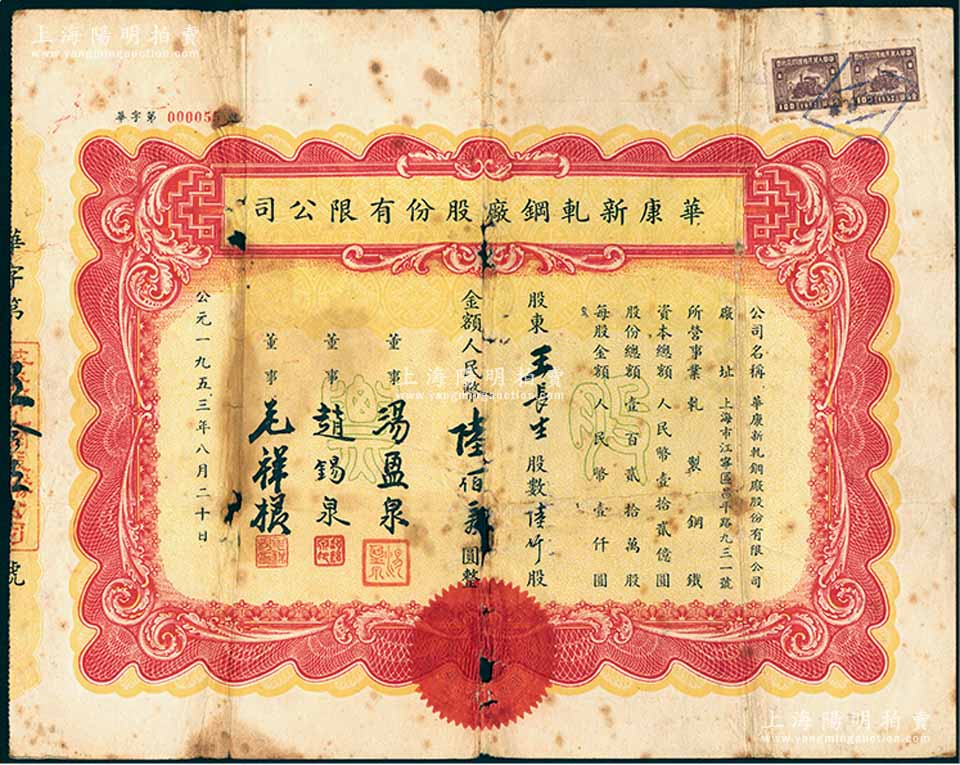 上海陽明拍賣
www.yangmingauction.com
華字第 000055
華康新軋鋼廠股份有限公司
公司名稱 華康新軋鋼廠股份有限公司
廠址 上海市江寧區昌平路九三一號
所營事業 軋製鋼鐵
資本總額 人民幣壹拾貳億圓
股份總額 壹百貳拾萬股
每股金額 人民幣壹仟圓
股東 王長生 股數 陸仟 股
金額人民幣 陸佰萬 圓整
董事 湯盈泉
董事 趙錫泉
董事 祥根
公元一九五三年八月二十日
華字第 伍拾伍 號
上海陽明拍賣
www.yangmingauction.com
上海陽明拍賣
www.yangmingauction.com